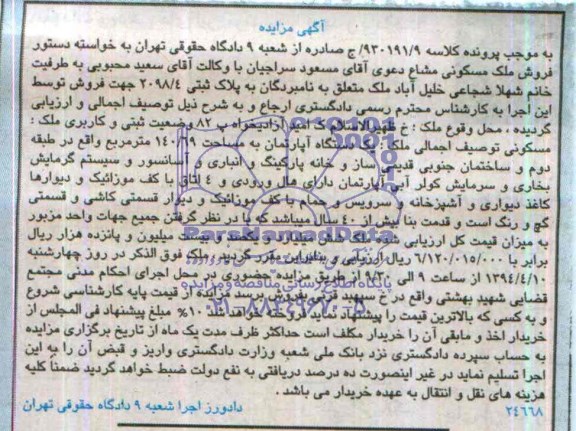 آگهی مزایده
به موجب پرونده کلاسه ۹۳۰۱۹۱/۹/ ج صادره از شعبه ۹ دادگاه حقوقی تهران به خواسته دستور
فروش ملک مسکونی مشاع دعوی آقای مسعود سراجیان با وکالت آقای سعید محبوبی به طرفیت
خانم شهلا شجاعی خلیل آباد ملک متعلق به نامبردگان به پلاک ثبتی ۲۰۹۸/۴ جهت فروش توسط
این اجرا به کارشناس محترم رسمی دادگستری ارجاع و به شرح ذیل توصیف اجمالی و ارزیابی
گردیده ، محل وقوع ملک : خ ظهیرالاسلام ک امید آزادیخواه پ ۸۲ وضعیت ثبتی و کاربری ملک :
مسکونی توصیف اجمالی ملک : یکدستگاه آپارتمان به مساحت ۱۴۰/۶۹ مترمربع واقع در طبقه
دوم و ساختمان جنوبی قدیمی ساز و خانه پارکینگ و انباری و آسانسور و سیستم گرمایش
بخاری و سرمایش کولر آبی آپارتمان دارای هال ورودی و ۴ اتاق با کف موزائیک و دیوارها
کاغذ دیواری و آشپزخانه و سرویس و حمام با کف موزائیک و دیوار قسمتی کاشی و قسمتی
گچ و رنگ است و قدمت بنا بیش از ۴۰ سال میباشد که با در نظر گرفتن جمیع جهات واحد مزبور
به میزان قیمت کل ارزیابی شده ملک شش میلیارد و یکصد و بیست میلیون و پانزده هزار ریال
برابر با ۶/۱۲۰/۰۱۵/۰۰۰ ریال ارزیابی و بنابراین مقرر گردید ، ملک فوق الذکر در روز چهارشنبه
۱۳۹۴/۴/۱۰ از ساعت ۹ الی ۹/۳۰ از طریق مزایده حضوری در محل اجرای احکام مدنی مجتمع
قضایی شهید بهشتی واقع در خ سپهبد قرنی بفروش برسد مزایده از قیمت پایه کارشناسی شروع
و به کسی که بالاترین قیمت را پیشنهاد نماید فروخته خواهد شد ۱۰% مبلغ پیشنهاد فی المجلس از
خریدار اخذ و مابقی آن را خریدار مکلف است حداکثر ظرف مدت یک ماه از تاریخ برگزاری مزایده
به حساب سپرده دادگستری نزد بانک ملی شعبه وزارت دادگستری واریز و قبض آن را به این
اجرا تسلیم نماید در غیر اینصورت ده درصد دریافتی به نفع دولت ضبط خواهد گردید ضمناً کلیه
هزینه های نقل و انتقال به عهده خریدار می باشد .
۲۴۶۶۸ دادورز اجرا شعبه ۹ دادگاه حقوقی تهران
ParsNamadData
پایگاه اطلاع رسانی مناقصه و مزایده